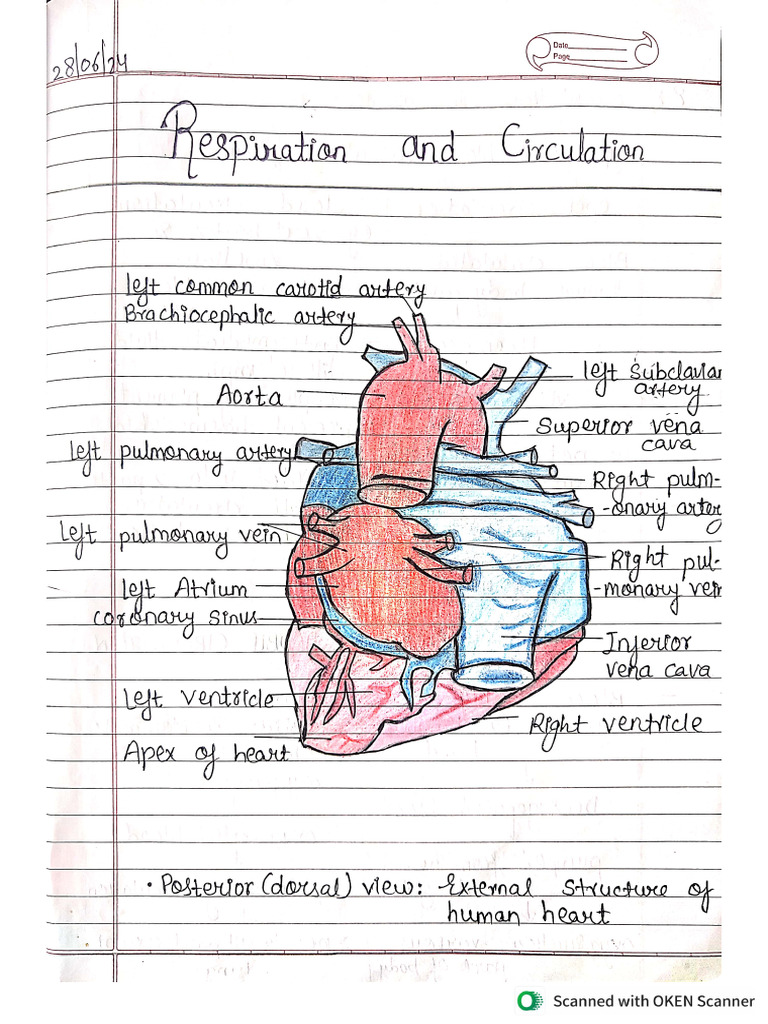 28/06/24
Date
Page
Respiration and Circulation
left common carotid artery
Brachiocephalic artery
left subclavian
artery
Aorta
Superior vena
cava
left pulmonary artery
Right pulm-
-onary artery
left pulmonary vein
Right pul-
-monary vein
left Atrium
coronary sinus
Inferior
vena cava
left ventricle
Right ventricle
Apex of heart
• Posterior (dorsal) view: External structure of
human heart
Scanned with OKEN Scanner